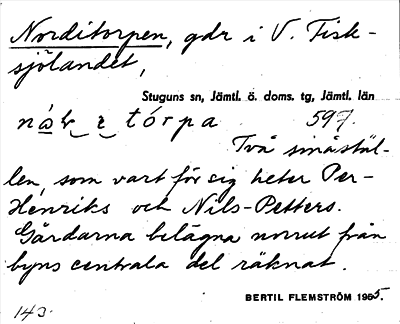 Norditorpen, gdr i V. Fisk-
sjölandet,
Stuguns sn, Jämtl. ö. doms. tg, Jämtl. län
tórpa 597.
Två småstäl-
len, som vart för sig heter Per-
Henriks och Nils-Petters.
Gårdarna belägna norrut från
byns centrala del räknat.
BERTIL FLEMSTRÖM 1955.
143.